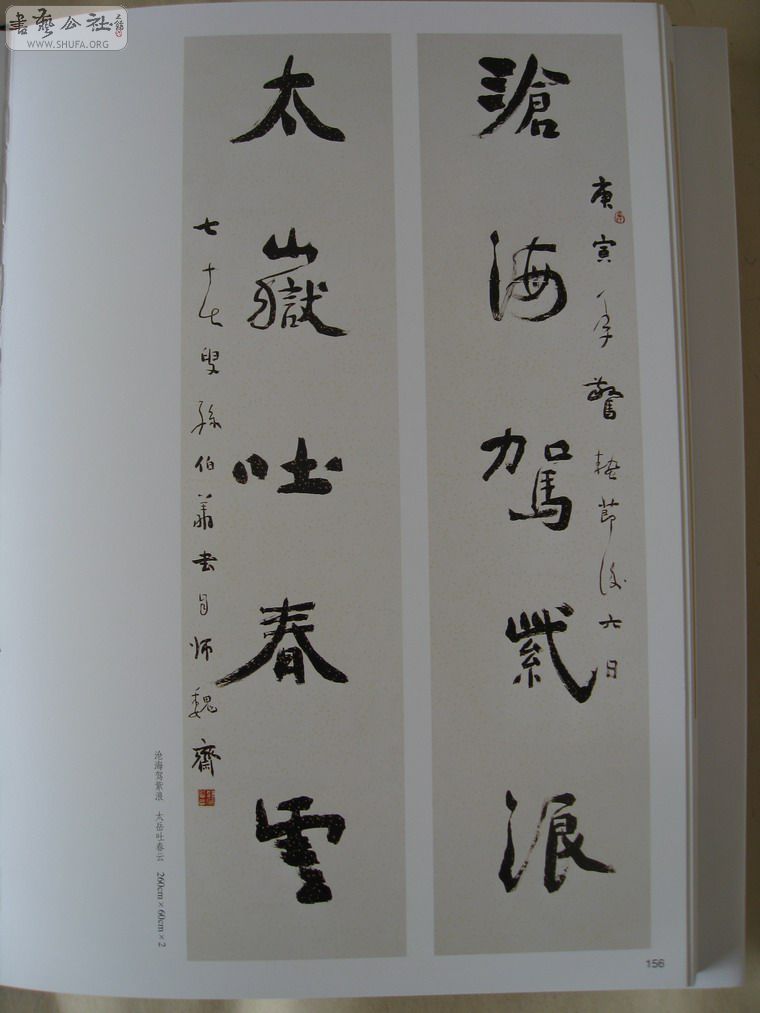 書藝公社
WWW.SHUFA.ORG
滄海駕紫浪
庚寅年驚蟄節後六日
太嶽吐春雲
七十七叟孫伯翔書自师魏齋
沧海驾紫浪 太岳吐春云 260cm×60cm×2
156